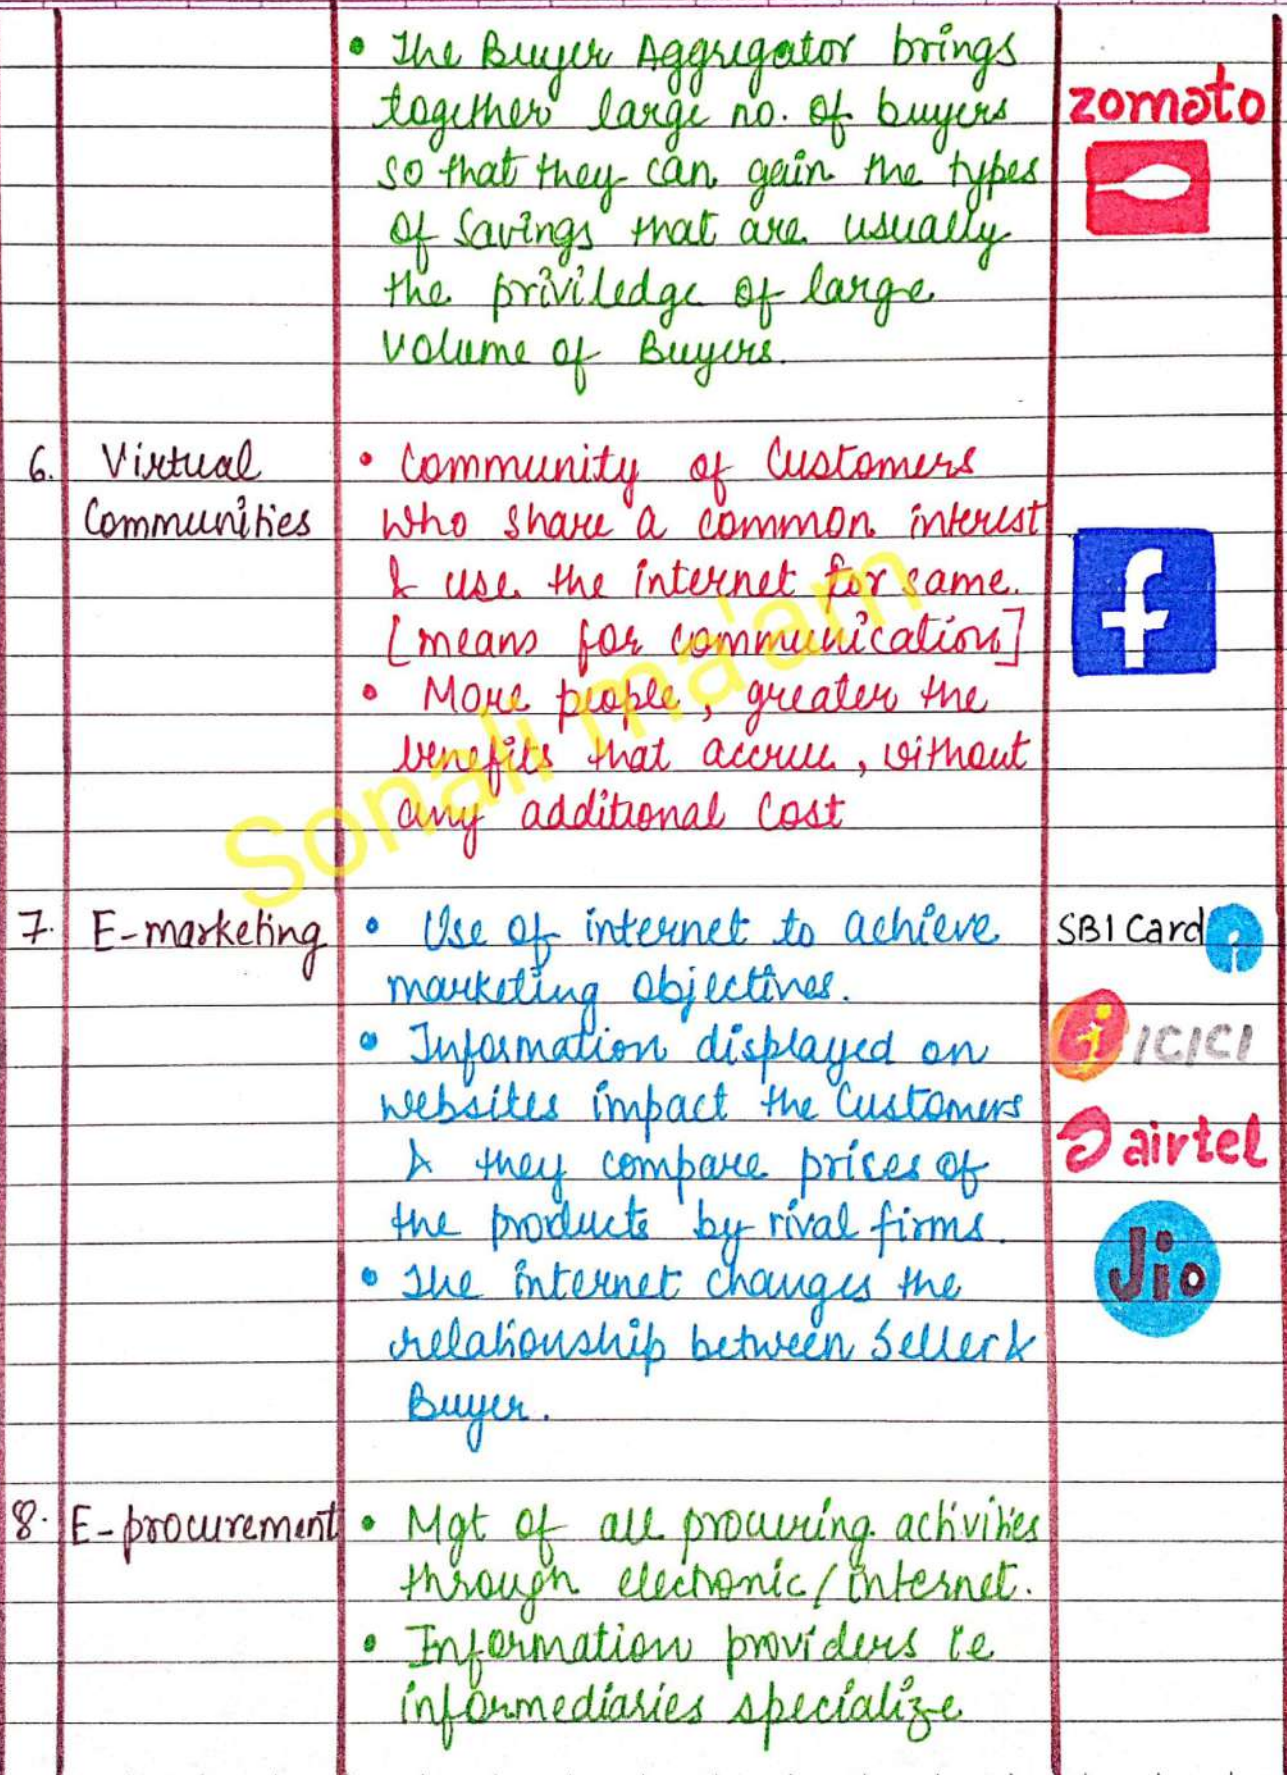 • The Buyer Aggregator brings
together large no. of buyers
so that they can gain the types
of savings that are usually
the priviledge of large
volume of Buyers.
zomato
6. Virtual
Communities
• Community of Customers
who share a common interest
& use the internet for same.
[means for communication]
• More people, greater the
benefits that accrue, without
any additional Cost
f
Sonali ma'am
7. E-marketing
• Use of internet to achieve
marketing objectives.
• Information displayed on
websites impact the Customers
& they compare prices of
the products by rival firms.
• The internet changes the
relationship between Seller &
Buyer.
SBI Card
i ICICI
airtel
Jio
8. E-procurement
• Mgt of all procuring activities
through electronic/internet.
• Information providers i.e
informediaries specialize